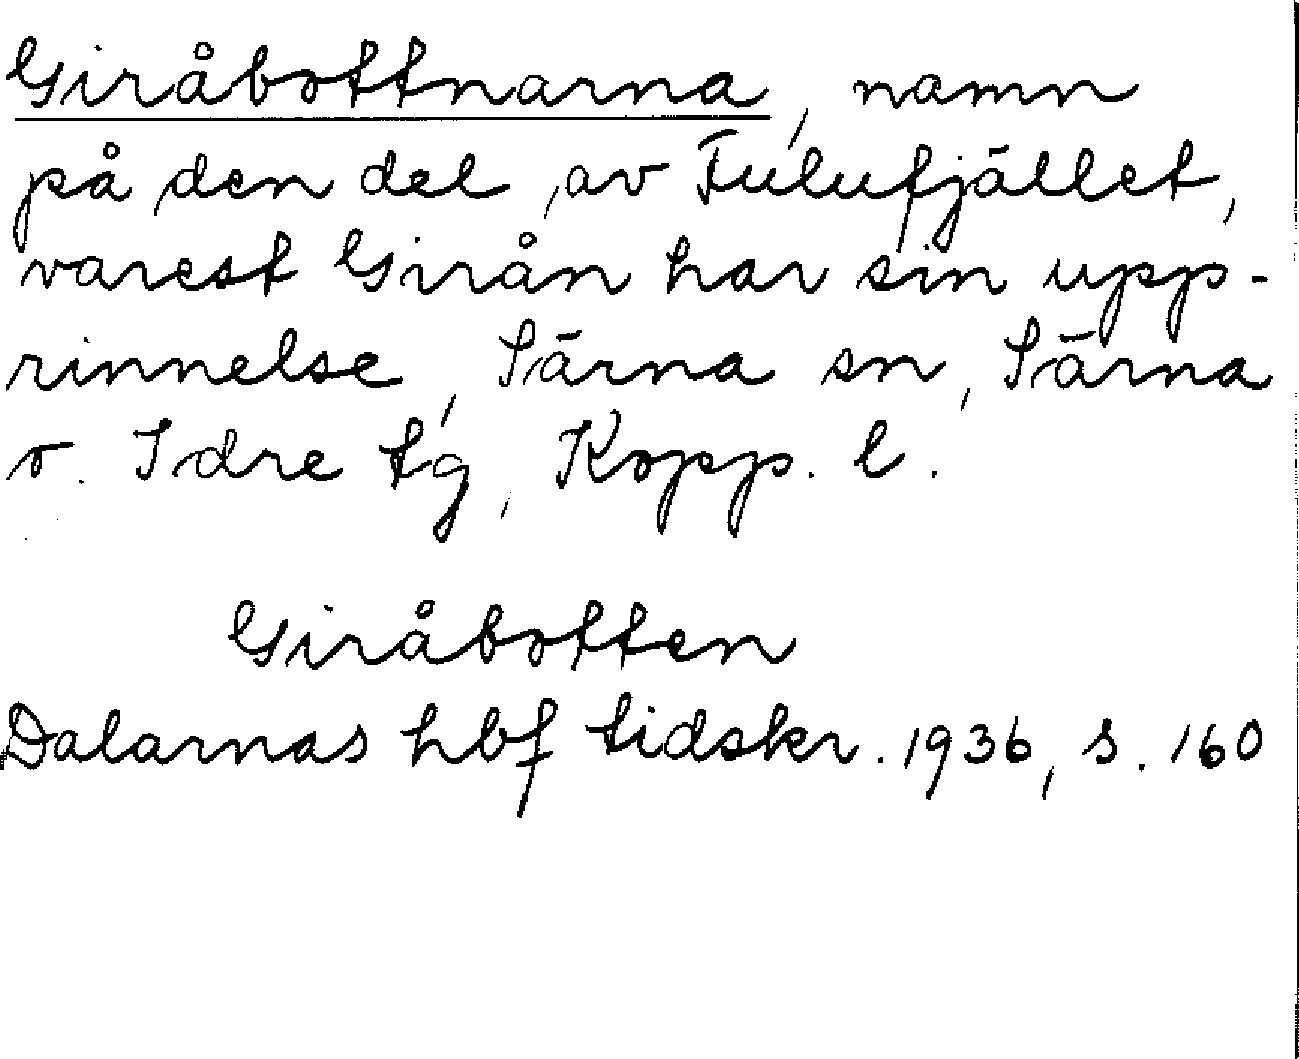 Giråbottnarna, namn
på den del av Fulufjället,
varest Girån har sin upp-
rinnelse, Särna sn, Särna
o. Idre tg, Kopp. l.
Giråbotten
Dalarnas hbf tidskr. 1936, s. 160